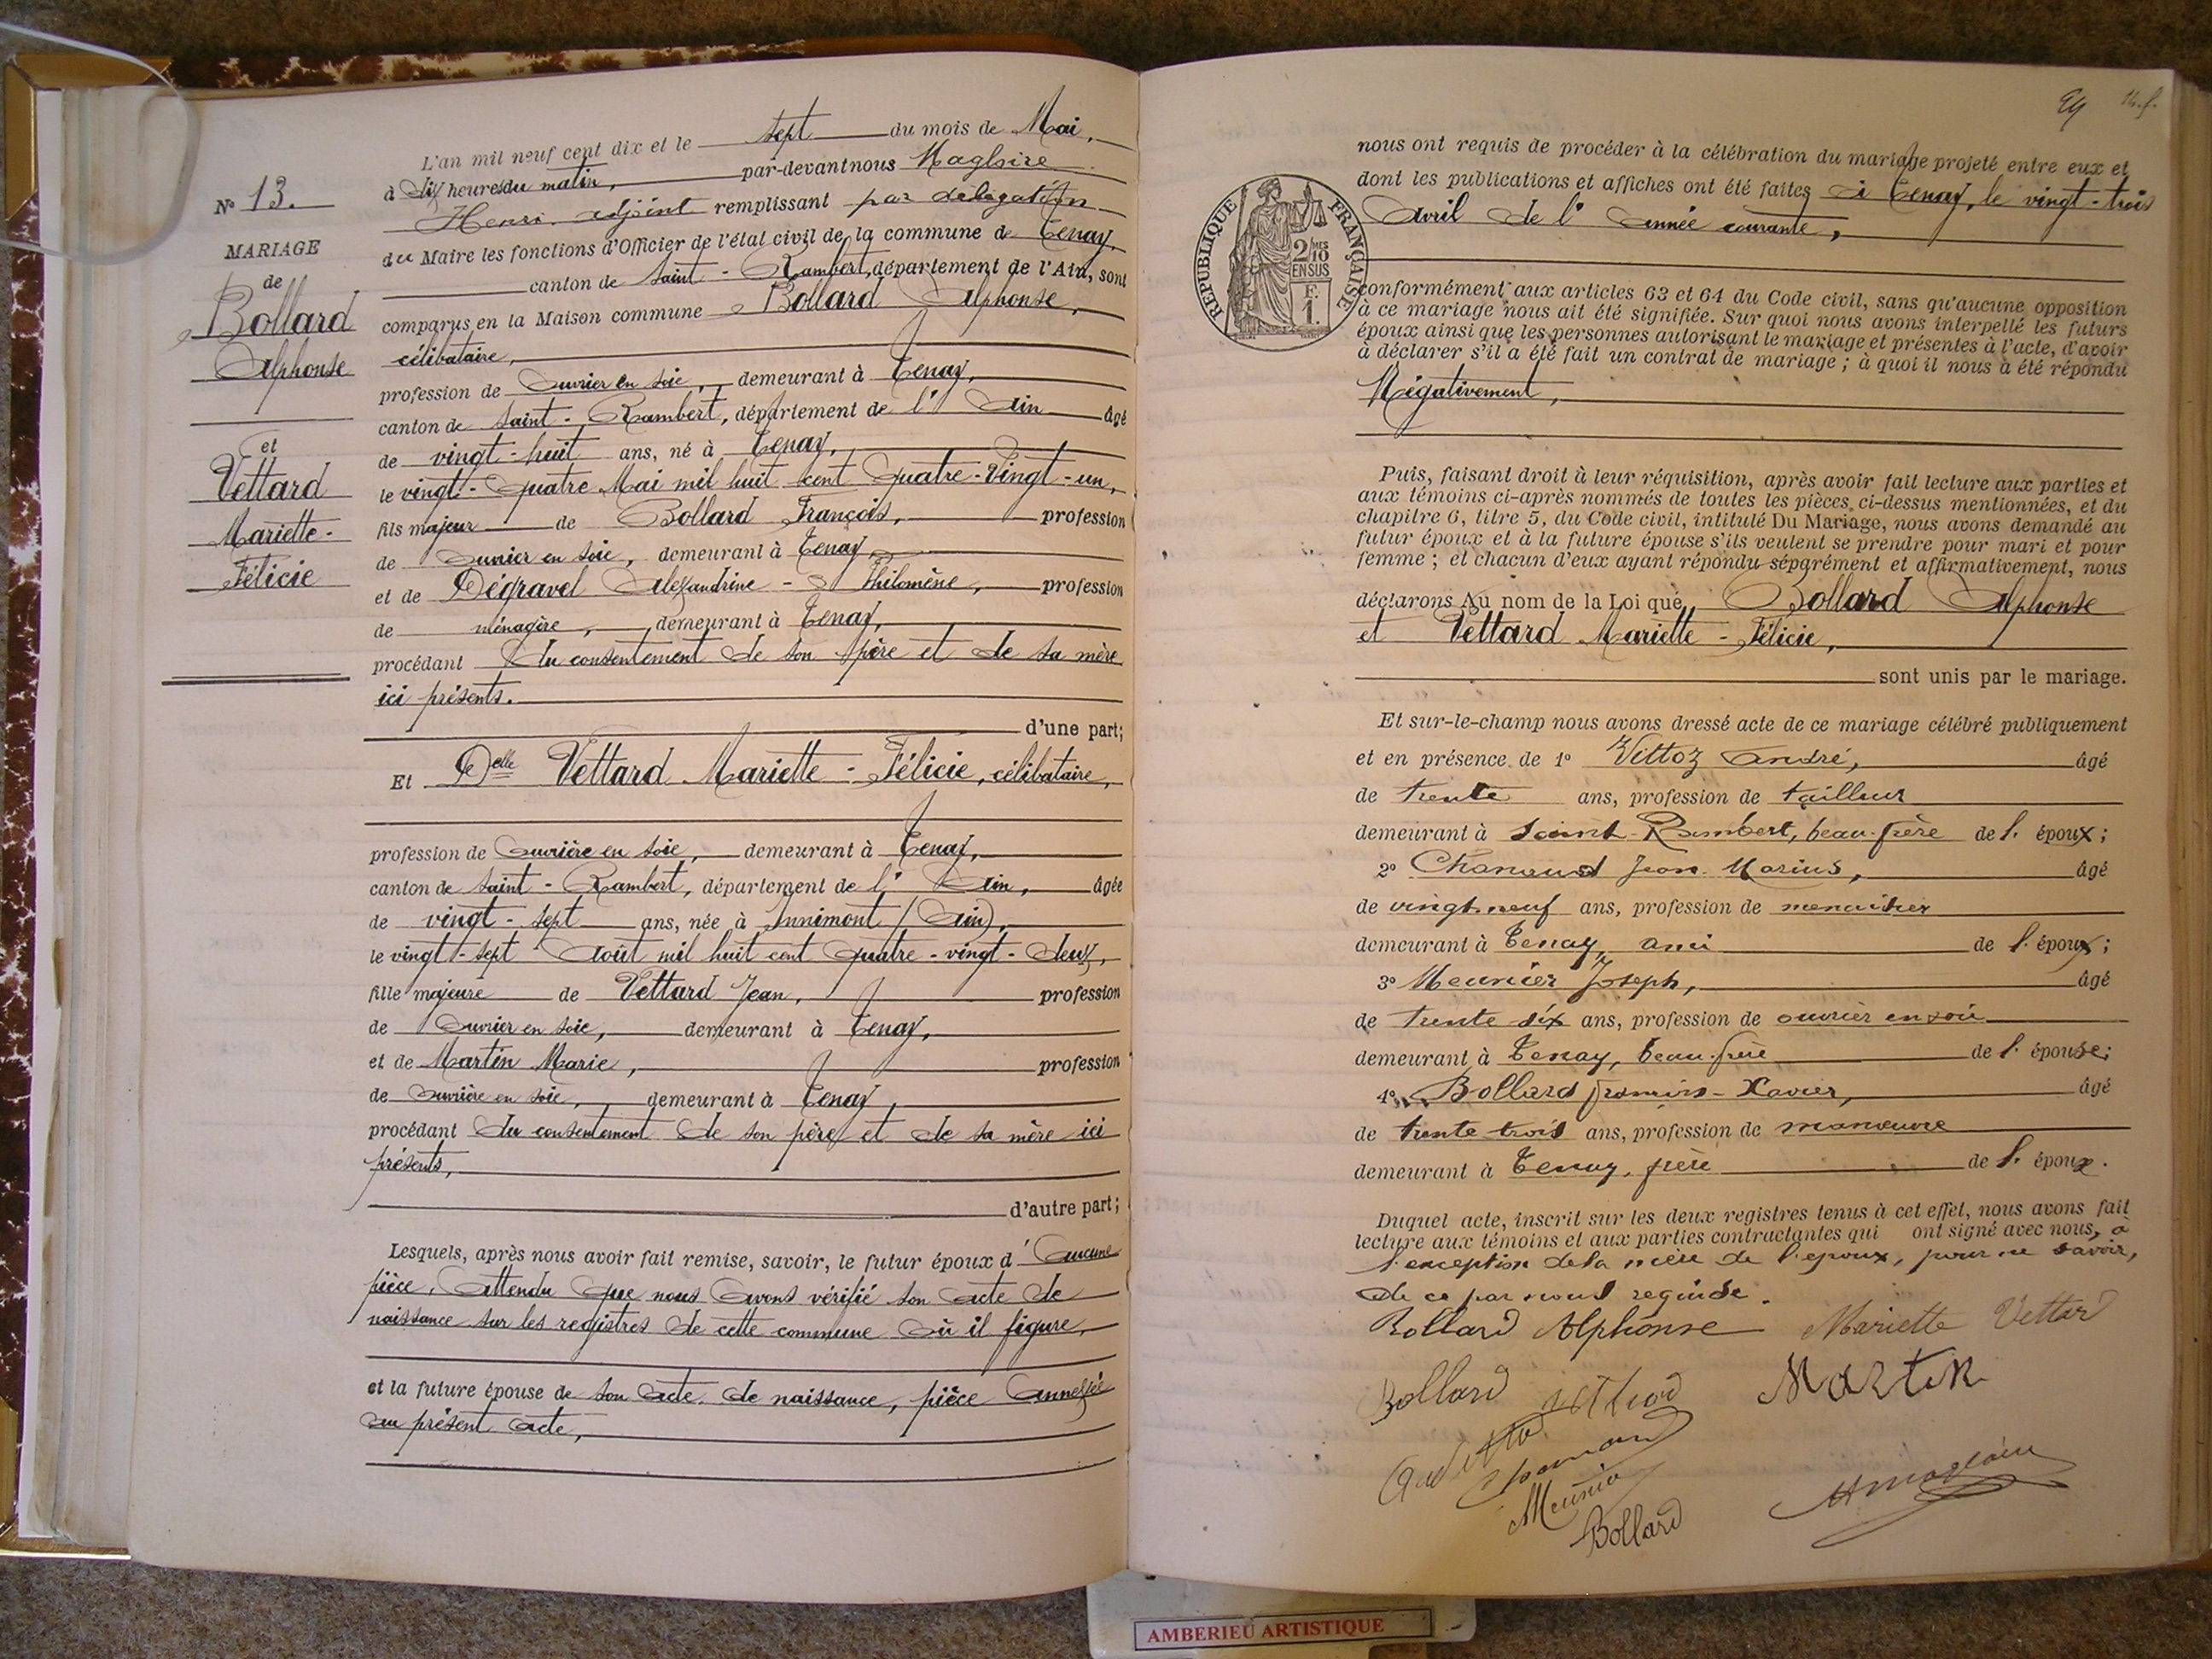 L'an mil neuf cent dix et le sept du mois de Mai,
à dix heures du matin, par-devant nous Magloire
Henri adjoint remplissant par délégation
du Maire les fonctions d'Officier de l'état civil de la commune de Tenay,
canton de Saint-Rambert, département de l'Ain, sont
comparus en la Maison commune Bollard Alphonse,
célibataire,
profession de Ouvrier en soie, demeurant à Tenay,
canton de Saint-Rambert, département de l' Ain âgé
de vingt-huit ans, né à Tenay,
le vingt-quatre Mai mil huit cent quatre-vingt-un,
fils majeur de Bollard François, profession
de ouvrier en soie, demeurant à Tenay,
et de Dégravel Alexandrine-Philomène, profession
de ménagère, demeurant à Tenay,
procédant du consentement de son père et de sa mère
ici présents.
d'une part;
Et Delle Vettard Mariette-Félicie, célibataire,
profession de Ouvrière en soie, demeurant à Tenay,
canton de Saint-Rambert, département de l' Ain, âgée
de vingt-sept ans, née à Innimont (Ain),
le vingt-sept Août mil huit cent quatre-vingt-deux,
fille majeure de Vettard Jean, profession
de Ouvrier en soie, demeurant à Tenay,
et de Martin Marie, profession
de Ouvrière en soie, demeurant à Tenay,
procédant du consentement de son père et de sa mère ici
présents,
d'autre part;
Lesquels, après nous avoir fait remise, savoir, le futur époux d'Aucune
pièce, attendu que nous avons vérifié son acte de
naissance sur les registres de cette commune où il figure,
et la future épouse de son acte de naissance, pièce annexée
au présent acte,
No 13.
MARIAGE
de
Bollard
Alphonse
et
Vettard
Mariette-
Félicie
nous ont requis de procéder à la célébration du mariage projeté entre eux et
dont les publications et affiches ont été faites à Tenay, le vingt-trois
Avril de l'année courante,
REPUBLIQUE FRANÇAISE
2/10 MES
EN SUS
F.
1.
conformément aux articles 63 et 64 du Code civil, sans qu'aucune opposition
à ce mariage nous ait été signifiée. Sur quoi nous avons interpellé les futurs
époux ainsi que les personnes autorisant le mariage et présentes à l'acte, d'avoir
à déclarer s'il a été fait un contrat de mariage; à quoi il nous a été répondu
Négativement,
Puis, faisant droit à leur réquisition, après avoir fait lecture aux parties et
aux témoins ci-après nommés de toutes les pièces ci-dessus mentionnées, et du
chapitre 6, titre 5, du Code civil, intitulé Du Mariage, nous avons demandé au
futur époux et à la future épouse s'ils veulent se prendre pour mari et pour
femme; et chacun d'eux ayant répondu séparément et affirmativement, nous
déclarons Au nom de la Loi que Bollard Alphonse
et Vettard Mariette-Félicie,
sont unis par le mariage.
Et sur-le-champ nous avons dressé acte de ce mariage célébré publiquement
et en présence de 1° Vittoz André, âgé
de trente ans, profession de tailleur
demeurant à Saint-Rambert, beau-frère de l' époux;
2° Chanaud Jean-Marius, âgé
de vingt-neuf ans, profession de menuisier
demeurant à Tenay, ami de l' époux;
3° Meunier Joseph, âgé
de trente-six ans, profession de ouvrier en soie
demeurant à Tenay, beau-frère de l' épouse;
4° Bollard François-Xavier, âgé
de trente-trois ans, profession de manœuvre
demeurant à Tenay, frère de l' époux.
Duquel acte, inscrit sur les deux registres tenus à cet effet, nous avons fait
lecture aux témoins et aux parties contractantes qui ont signé avec nous, à
l'exception de la mère de l'époux, pour ne savoir,
de ce par nous requise.
Bollard Alphonse Mariette Vettard
Bollard Martin
Meunier
Bollard
AMBERIEU ARTISTIQUE